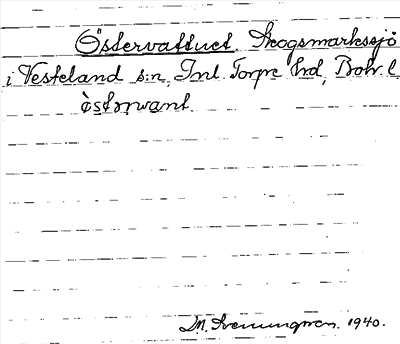 Östervattnet. Skogsmarkssjö
i Vesteland s:n, Inl. Torpe hrd, Boh. l
östərvant.
M. Svenungsson. 1940.